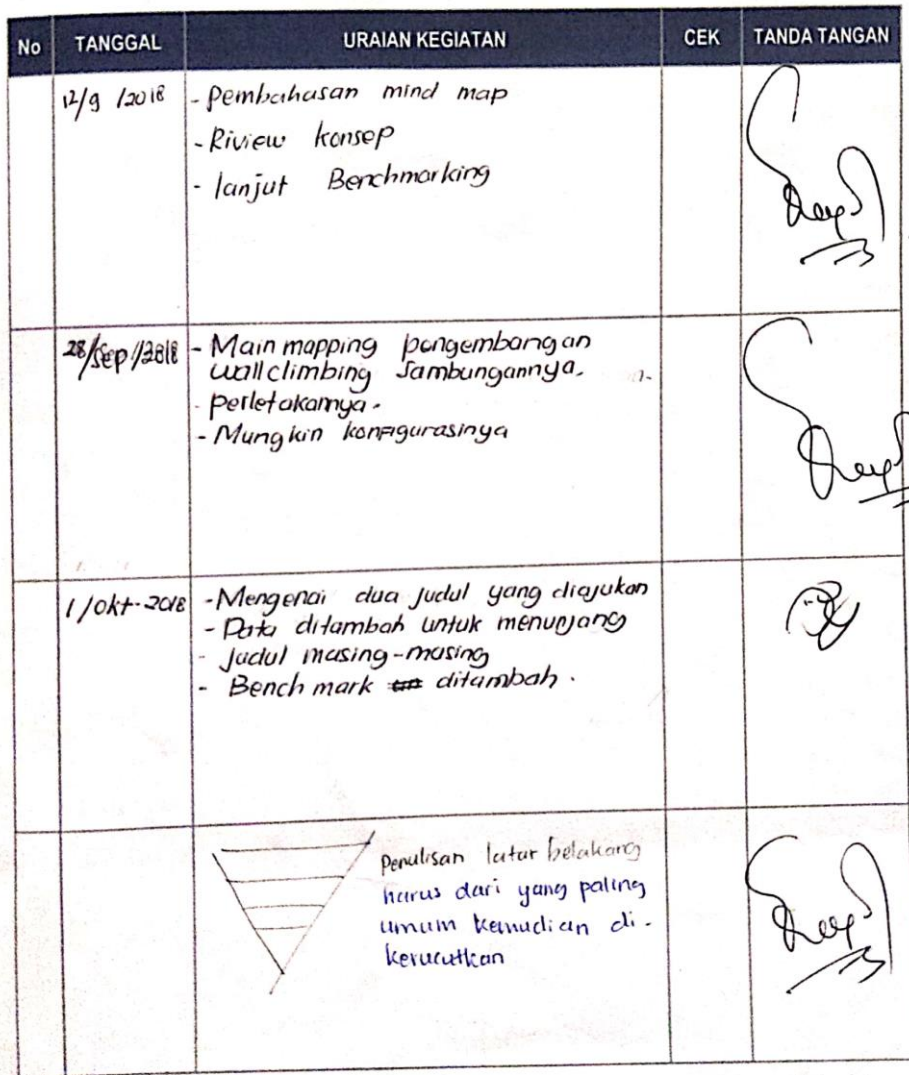 No TANGGAL URAIAN KEGIATAN CEK TANDA TANGAN
12/9 /2018 - Pembahasan mind map
- Riview konsep
- lanjut Benchmarking
28/Sep/2018 - Main mapping pengembangan
wall climbing Sambungannya.
- perletakannya.
- Mungkin konfigurasinya
1/Okt-2018 - Mengenai dua judul yang diajukan
- Data ditambah untuk menunjang
- judul masing-masing
- Bench mark ditambah.
Penulisan latar belakang
harus dari yang paling
umum kemudian di-
kerucutkan